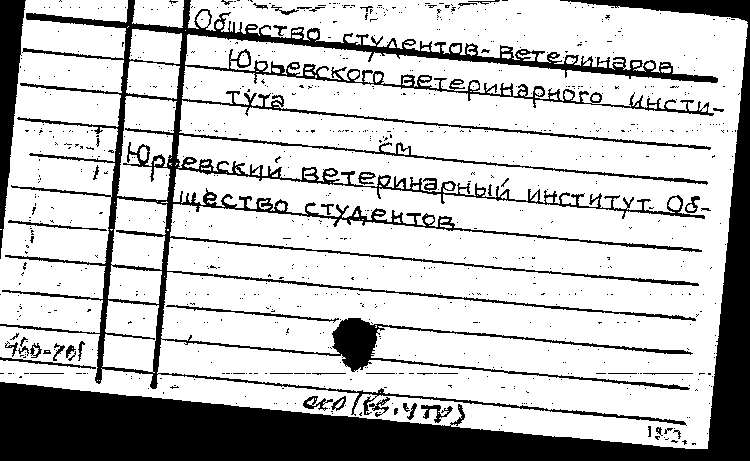 Общество студентов-ветеринаров
Юрьевского ветеринарного инсти-
тута
см
Юрьевский ветеринарный институт. Об-
щество студентов
460-701